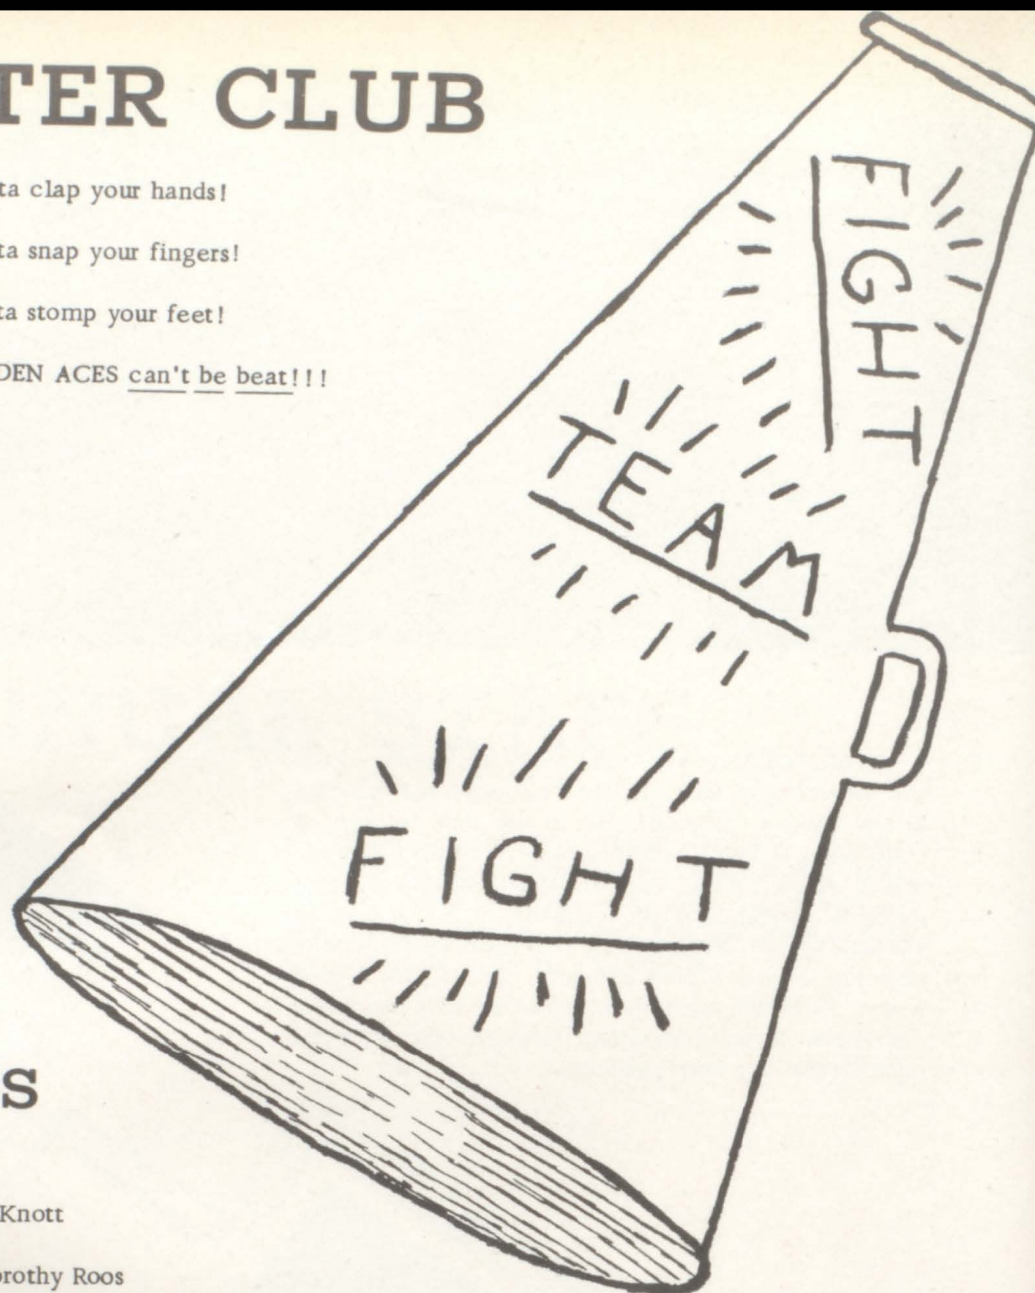 TER CLUB
ta clap your hands!
ta snap your fingers!
ta stomp your feet!
DEN ACES can't be beat!!!
FIGHT
TEAM
FIGHT
S
Knott
orothy Roos